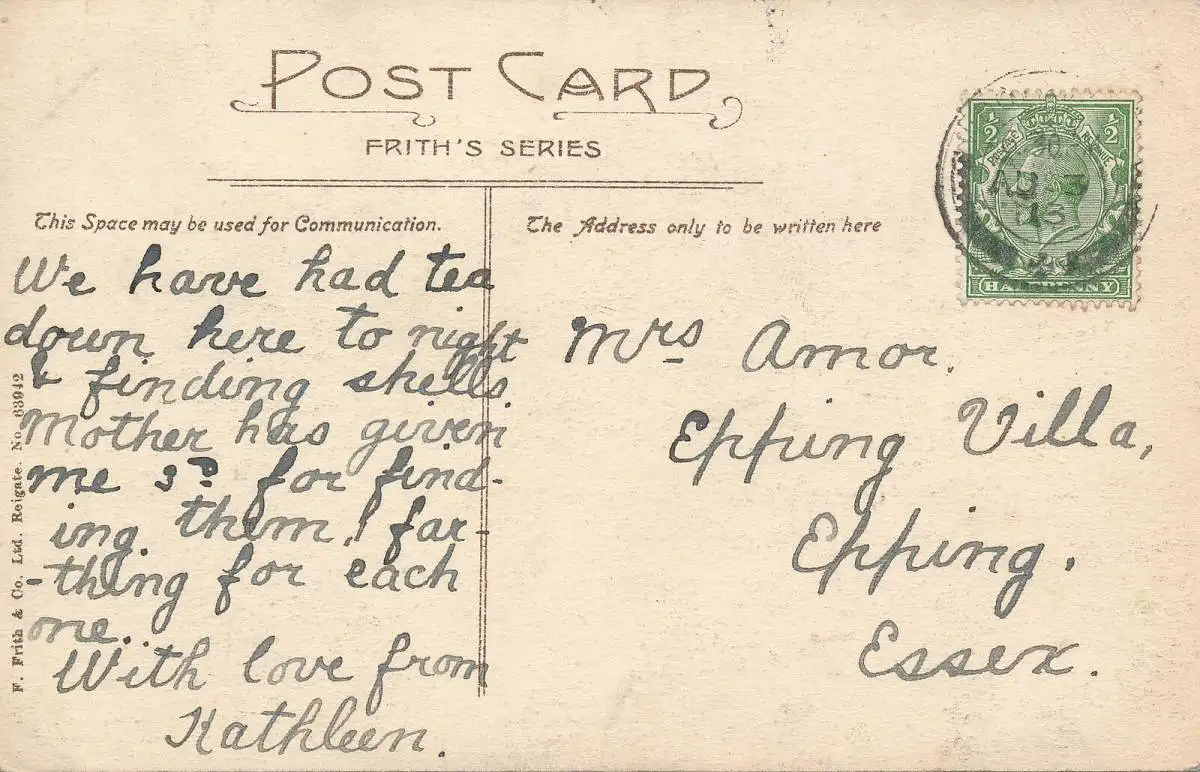 POST CARD
FRITH'S SERIES
This Space may be used for Communication.
The Address only to be written here
We have had tea
down here to night
& finding shells
Mother has given
me 3D for find-
ing them, 1 far-
-thing for each
one.
With love from
Kathleen.
Mrs Amor.
Epping Villa,
Epping.
Essex.
F. Frith & Co. Ltd. Reigate. No. 63942
1/2 1/2
POSTAGE REVENUE
HALFPENNY
AU 3